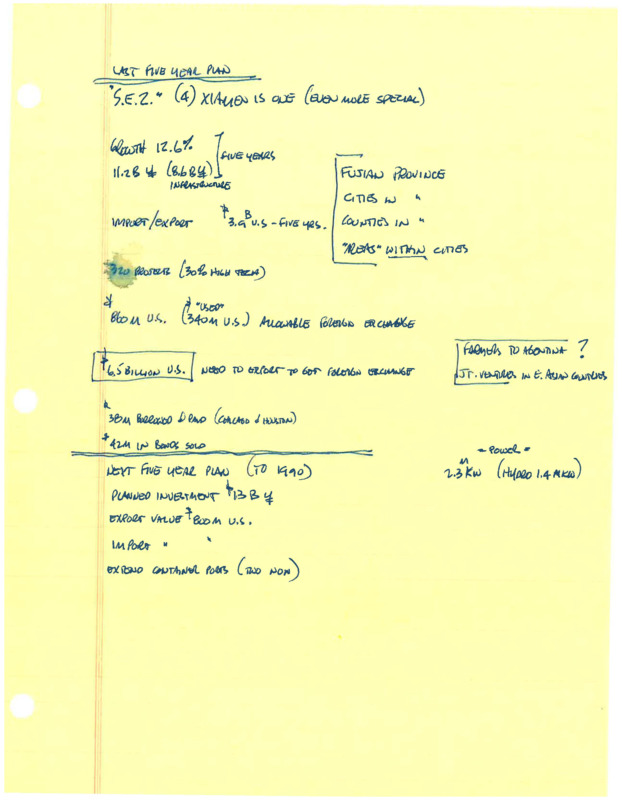 LAST FIVE YEAR PLAN
"S.E.Z." (4) XIAMEN IS ONE (EVEN MORE SPECIAL)
GROWTH 12.6%
11.2 B ¥ (8.6 B ¥)
INFRASTRUCTURE
FIVE YEARS
FUJIAN PROVINCE
CITIES IN "
COUNTIES IN "
"AREAS" WITHIN CITIES
IMPORT/EXPORT $3.9 B U.S - FIVE YRS.
320 PROJECTS (30% HIGH TECH)
"USED"
$860M U.S. ($340M U.S.) ALLOWABLE FOREIGN EXCHANGE
$6.5 BILLION U.S. NEED TO EXPORT TO GET FOREIGN EXCHANGE
FARMERS TO AGENTINA ?
JT. VENTURES IN E. ASIAN COUNTRIES
38M BORROWED & PAID (CHICAGO & HOUSTON)
$42M IN BONDS SOLD
NEXT FIVE YEAR PLAN (TO 1990)
- POWER -
2.3 M KW (HYDRO 1.4 MKW)
PLANNED INVESTMENT $13 B ¥
EXPORT VALUE $800M U.S.
IMPORT " "
EXTEND CONTAINER PORTS (TWO NOW)